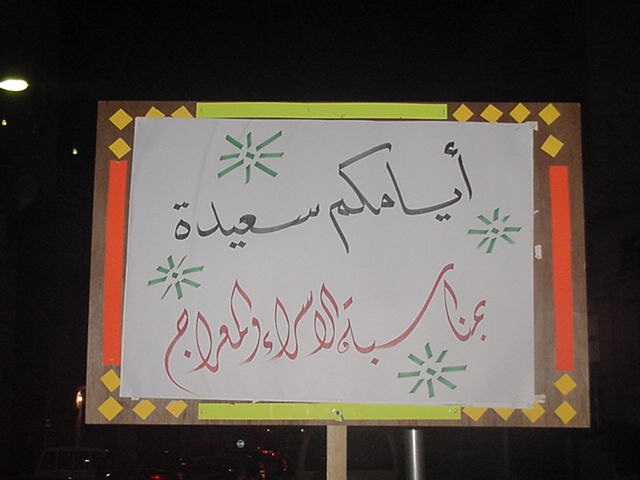 أيامكم سعيدة
بمناسبة الاسراء والمعراج